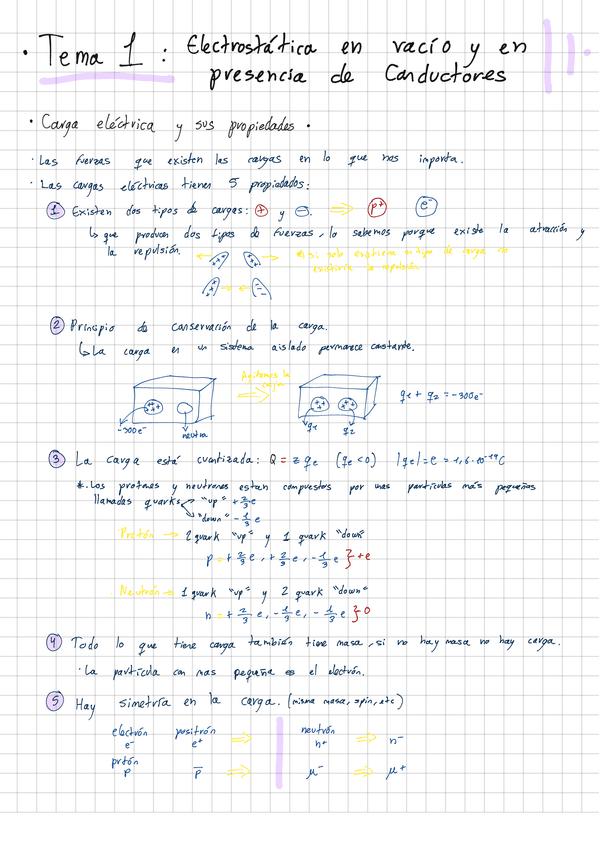 · Tema 1 : Electrostática en vacío y en
presencia de Conductores
· Carga eléctrica y sus propiedades ·
· Las fuerzas que existen las cargas en lo que nos importa.
· Las cargas eléctricas tienen 5 propiedades:
1 Existen dos tipos de cargas: + y -. ⇒ p+ e-
↳ que producen dos tipos de fuerzas, lo sabemos porque existe la atracción y
la repulsión.
si solo existiera un tipo de carga no
existiría la repulsión
2 Principio de conservación de la carga.
↳ La carga en un sistema aislado permanece constante.
Agitamos la
caja
-300e- neutra q1 q2 q1 + q2 = -300e-
3 La carga está cuantizada: Q = z qe (qe<0) |qe| = e = 1,6·10-19 C
*. Los protones y neutrones estan compuestos por unas partículas más pequeñas
llamadas quarks "up" + 2/3 e
"down" - 1/3 e
Protón → 2 quark "up" y 1 quark "down"
p = + 2/3 e, + 2/3 e, - 1/3 e } +e
Neutrón → 1 quark "up" y 2 quark "down"
n = + 2/3 e, - 1/3 e, - 1/3 e } 0
4 Todo lo que tiene carga también tiene masa, si no hay masa no hay carga.
· La partícula con mas pequeña es el electrón.
5 Hay simetría en la carga. (misma masa, spin, etc)
electrón positrón neutrón
e- e+ ⇒ n+ ⇒ n-
prtón
p p̅ ⇒ μ- ⇒ μ+